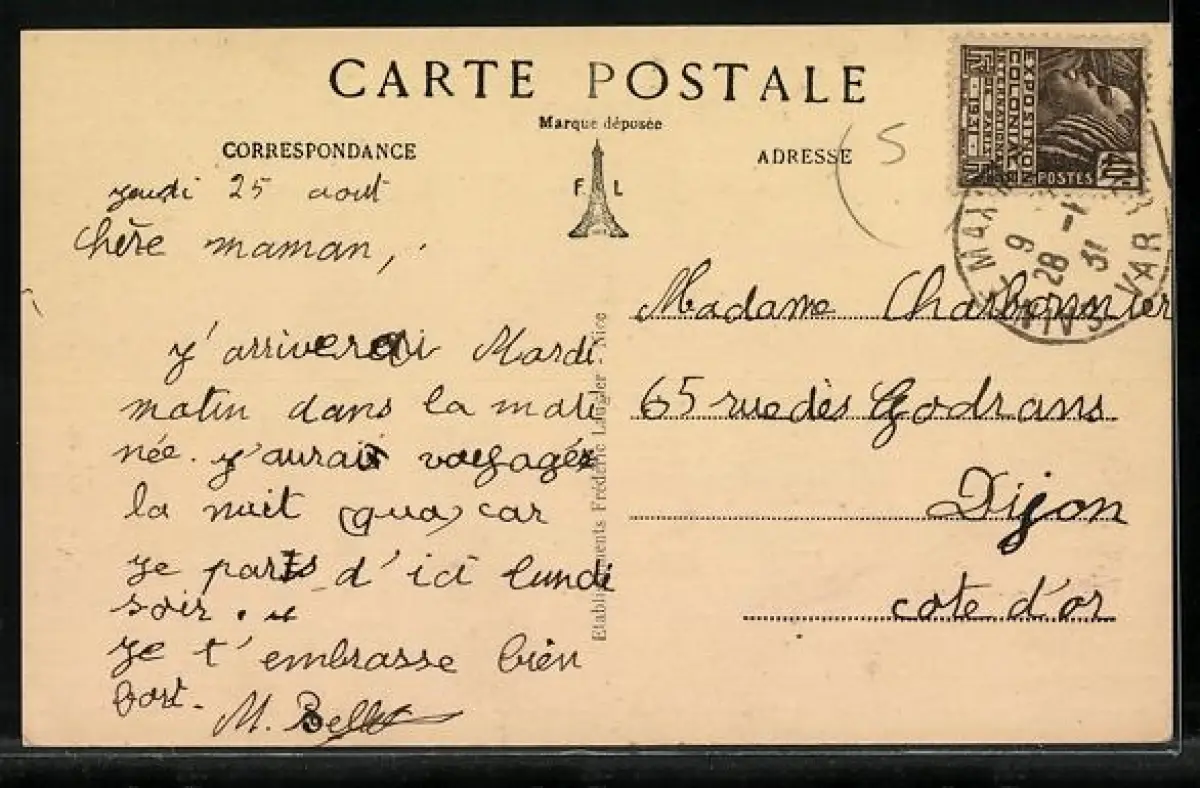 CARTE POSTALE
Marque déposée
CORRESPONDANCE
ADRESSE
S
F. L
jeudi 25 aout
Chère maman,
J'arriverai Mardi
matin dans la mati
née. J'aurais voyagés
la nuit (qua) car
je parts d'ici lundi
soir.
je t'embrasse bien
fort.
M. Bellet
Etablissements Frédéric Laugier - Nice
Madame Charbonnier
65 rue dès Godrans
Dijon
cote d'or
EXPOSITION
COLONIALE
INTERNATIONALE
DE PARIS
1931
POSTES
40c
MAX
VAR
9
28 -
31